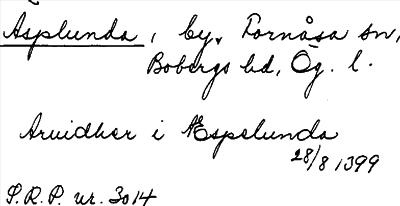 Asplunda, by, Fornåsa sn,
Bobergs hd, Ög. l.
Arvidher i Æspelunda
28/8 1399
S.R.P. nr. 3014